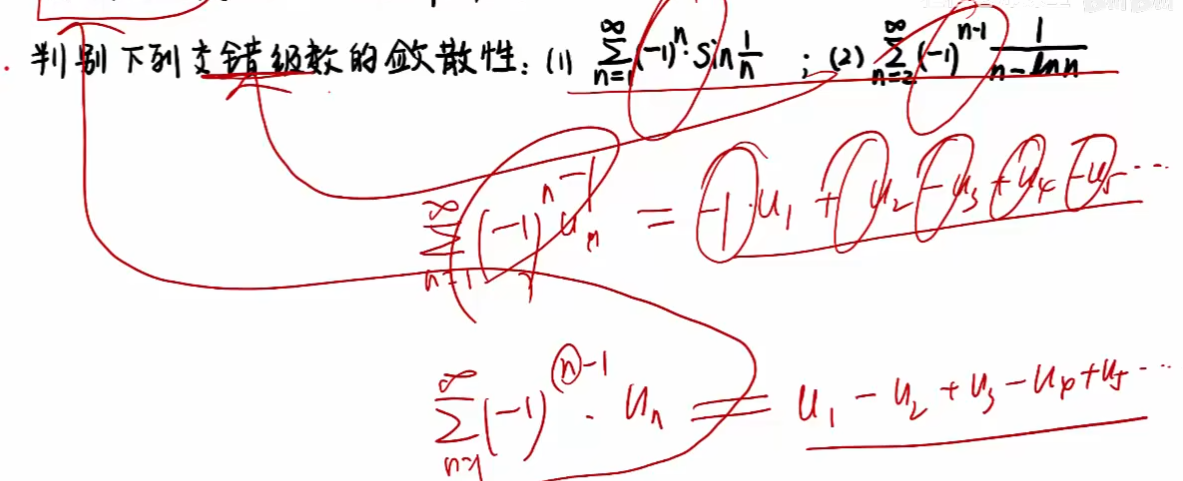 . 判别下列交错级数的敛散性: (1) ∑_{n=1}^{∞} (-1)^n · sin 1/n ; (2) ∑_{n=2}^{∞} (-1)^{n-1} 1/(n-ln n)
∑_{n=1}^{∞} (-1)^n u_n = -1·u_1 + u_2 - u_3 + u_4 - u_5 ...
∑_{n=1}^{∞} (-1)^{n-1} · u_n = u_1 - u_2 + u_3 - u_4 + u_5 - ...